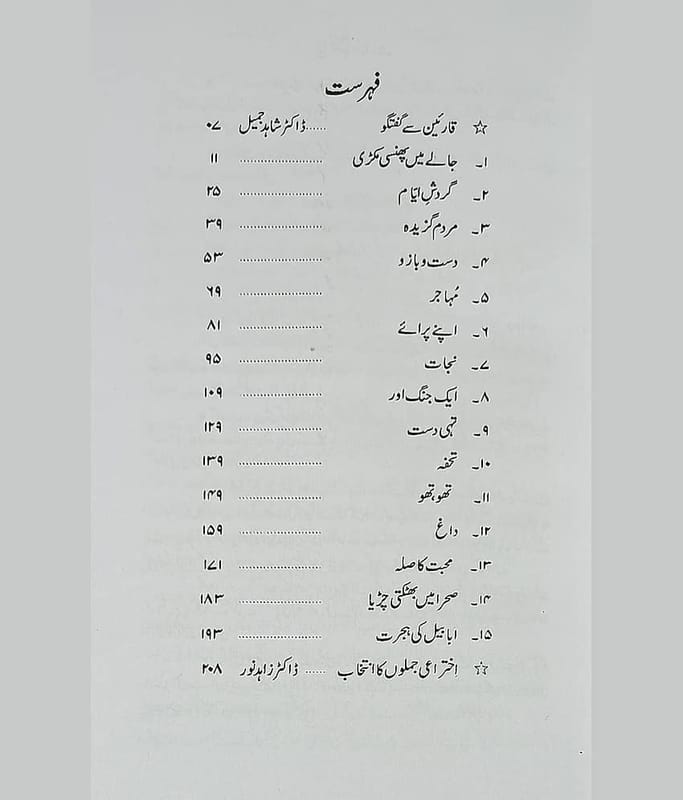 فہرست
☆ قارئین سے گفتگو ...... ڈاکٹر شاہد جمیل ۰۷
۱۔ جالے میں پھنسی مکڑی ........................ ۱۱
۲۔ گردشِ ایّام ........................ ۲۵
۳۔ مردم گزیدہ ........................ ۳۹
۴۔ دست و بازو ........................ ۵۳
۵۔ مُہاجر ........................ ۶۹
۶۔ اپنے پرائے ........................ ۸۱
۷۔ نجات ........................ ۹۵
۸۔ ایک جنگ اور ........................ ۱۰۹
۹۔ تہی دست ........................ ۱۲۹
۱۰۔ تحفہ ........................ ۱۳۹
۱۱۔ تھوتھو ........................ ۱۴۹
۱۲۔ داغ ........................ ۱۵۹
۱۳۔ محبت کا صلہ ........................ ۱۷۱
۱۴۔ صحرا میں بھٹکتی چڑیا ........................ ۱۸۳
۱۵۔ ابابیل کی ہجرت ........................ ۱۹۳
☆ اِختراعی جملوں کا انتخاب ...... ڈاکٹر زاہد نور ۲۰۸